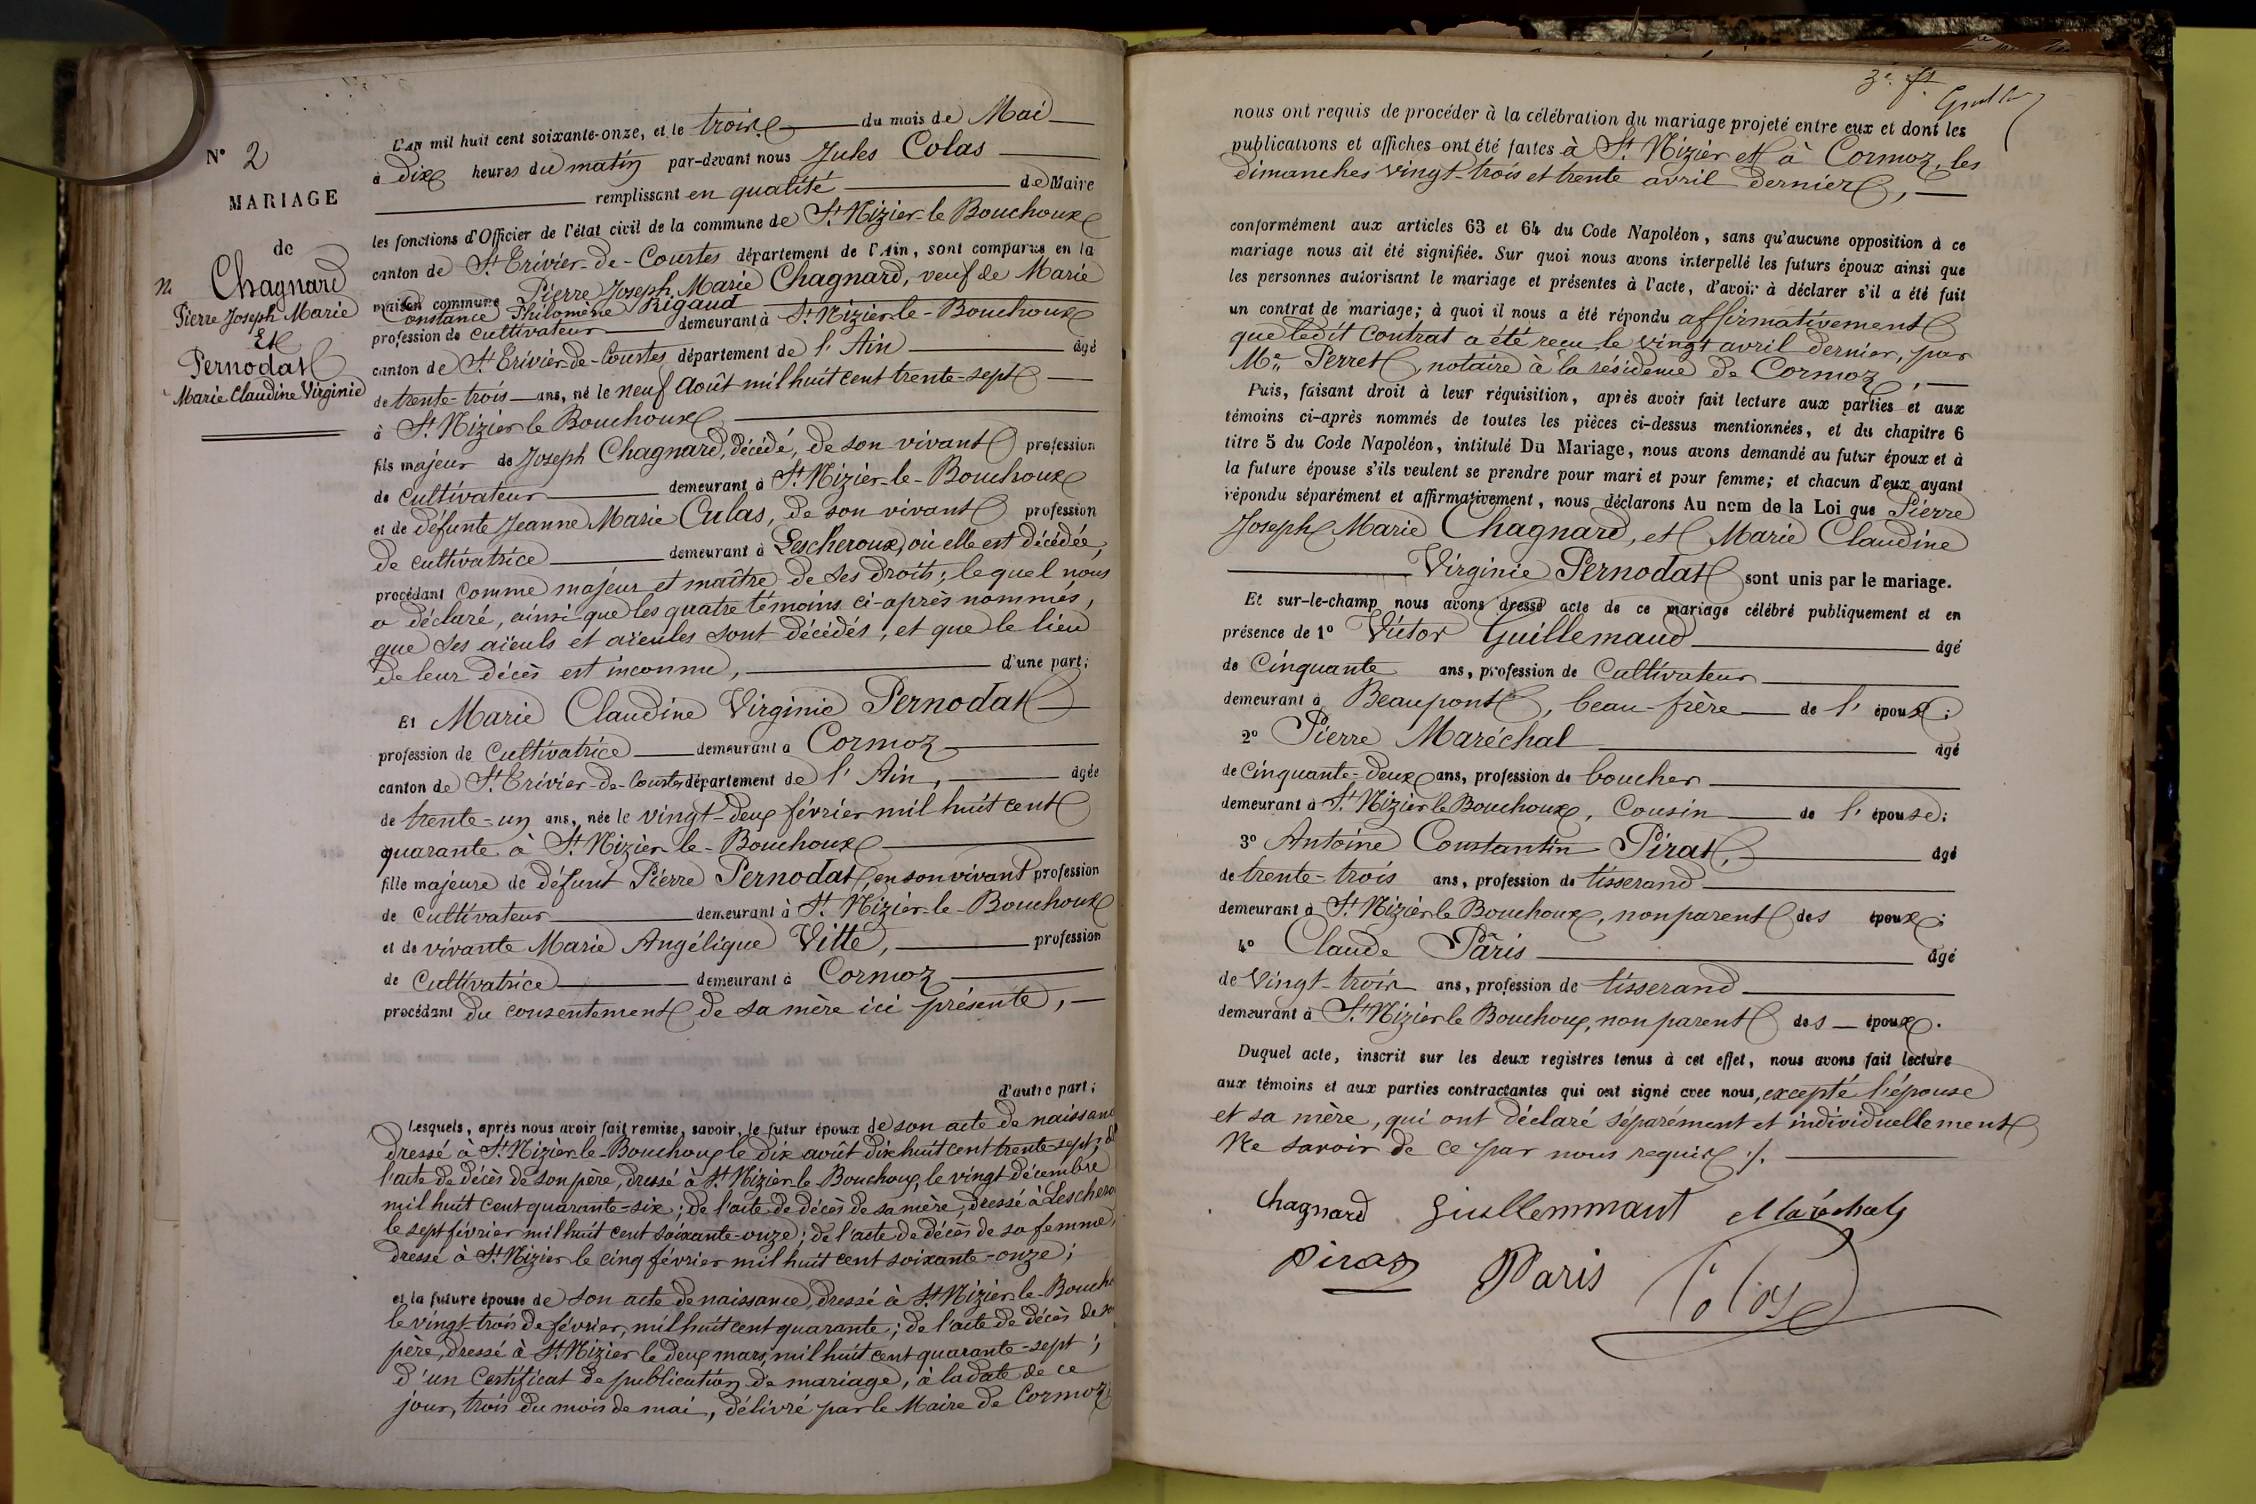 N° 2
MARIAGE
de
Chagnard
Pierre Joseph Marie
Et
Pernodat
Marie Claudine Virginie
L'an mil huit cent soixante-onze, et le trois du mois de Mai
à dix heures du matin par-devant nous Jules Colas
remplissant en qualité de Maire
les fonctions d'Officier de l'état civil de la commune de St Nizier-le Bouchoux
canton de St Trivier-de-Courtes département de l'Ain, sont comparus en la
maison commune Pierre Joseph Marie Chagnard, veuf de Marie
Constance Philomène Rigaud
profession de cultivateur demeurant à St Nizier le-Bouchoux
canton de St Trivier-de-Courtes département de l'Ain âgé
de trente-trois ans, né le neuf Août mil huit cent trente-sept
à St Nizier le Bouchoux
fils majeur de Joseph Chagnard, décédé, de son vivant profession
de cultivateur demeurant à St Nizier-le-Bouchoux
et de défunte Jeanne Marie Culas, de son vivant profession
de cultivatrice demeurant à Lescheroux, où elle est décédée,
procédant comme majeur et maître de ses droits; lequel nous
a déclaré, ainsi que les quatre témoins ci-après nommés,
que ses aïeuls et aïeules sont décédés; et que le lieu
de leur décès est inconnu, d'une part;
Et Marie Claudine Virginie Pernodat
profession de cultivatrice demeurant à Cormoz
canton de St Trivier-de-Courtes département de l'Ain, âgée
de trente-un ans, née le vingt-deux février mil huit cent
quarante à St Nizier le-Bouchoux
fille majeure de défunt Pierre Pernodat, en son vivant profession
de cultivateur demeurant à St Nizier-le-Bouchoux
et de vivante Marie Angélique Vitte, profession
de cultivatrice demeurant à Cormoz
procédant du consentement de sa mère ici présente,
d'autre part;
Lesquels, après nous avoir fait remise, savoir, le futur époux de son acte de naissance
dressé à St Nizier le-Bouchoux le dix août dix huit cent trente-sept;
l'acte de décès de son père, dressé à St Nizier le Bouchoux, le vingt décembre
mil huit cent quarante-six; de l'acte de décès de sa mère, dressé à Leschero
le sept février mil huit cent soixante-onze; de l'acte de décès de sa femme,
dressé à St Nizier le cinq février mil huit cent soixante-onze;
et la future épouse de son acte de naissance, dressé à St Nizier le-Boucho
le vingt trois de février, mil huit cent quarante; de l'acte de décès de
père, dressé à St Nizier le deux mars mil huit cent quarante-sept;
d'un Certificat de publication de mariage, à la date de ce
jour, trois du mois de mai, délivré par le Maire de Cormoz,
nous ont requis de procéder à la célébration du mariage projeté entre eux et dont les
publications et affiches ont été faites à St Nizier et à Cormoz, les
dimanches vingt-trois et trente avril dernier,
conformément aux articles 63 et 64 du Code Napoléon, sans qu'aucune opposition à ce
mariage nous ait été signifiée. Sur quoi nous avons interpellé les futurs époux ainsi que
les personnes autorisant le mariage et présentes à l'acte, d'avoir à déclarer s'il a été fait
un contrat de mariage; à quoi il nous a été répondu affirmativement
que ledit contrat a été reçu le vingt avril dernier, par
Me Perret, notaire à la résidence de Cormoz,
Puis, faisant droit à leur réquisition, après avoir fait lecture aux parties et aux
témoins ci-après nommés de toutes les pièces ci-dessus mentionnées, et du chapitre 6
titre 5 du Code Napoléon, intitulé Du Mariage, nous avons demandé au futur époux et à
la future épouse s'ils veulent se prendre pour mari et pour femme; et chacun d'eux ayant
répondu séparément et affirmativement, nous déclarons Au nom de la Loi que Pierre
Joseph Marie Chagnard, et Marie Claudine
Virginie Pernodat sont unis par le mariage.
Et sur-le-champ nous avons dressé acte de ce mariage célébré publiquement et en
présence de 1° Victor Guillemaud âgé
de Cinquante ans, profession de Cultivateur
demeurant à Beaupont, beau-frère de l'époux;
2° Pierre Maréchal âgé
de Cinquante-deux ans, profession de boucher
demeurant à St Nizier le Bouchoux, Cousin de l'épouse;
3° Antoine Constantin Pirat, âgé
de trente-trois ans, profession de tisserand
demeurant à St Nizier le Bouchoux, non parent des époux;
4° Claude Pâris âgé
de Vingt-trois ans, profession de tisserand
demeurant à St Nizier le Bouchoux, non parent des époux.
Duquel acte, inscrit sur les deux registres tenus à cet effet, nous avons fait lecture
aux témoins et aux parties contractantes qui ont signé avec nous, excepté l'épouse
et sa mère, qui ont déclaré séparément et individuellement
Ne savoir de ce par nous requis ./.
Chagnard Guillemmaut Maréchal
Pirat Paris Colas